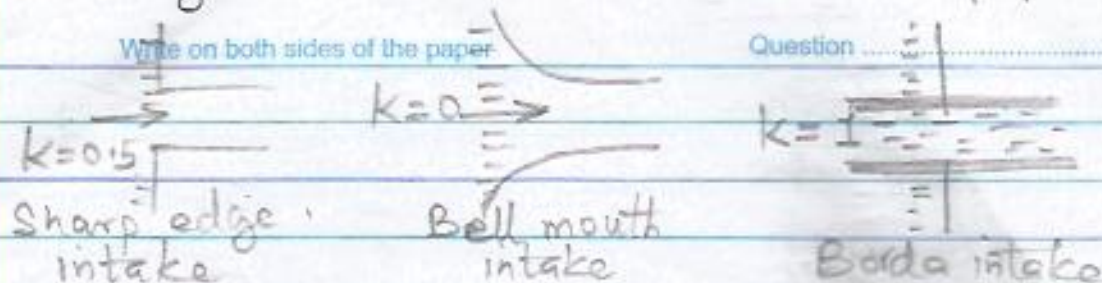 Write on both sides of the paper
Question
k=0.5
k=0
k=1
Sharp edge
intake
Bell mouth
intake
Borda intake